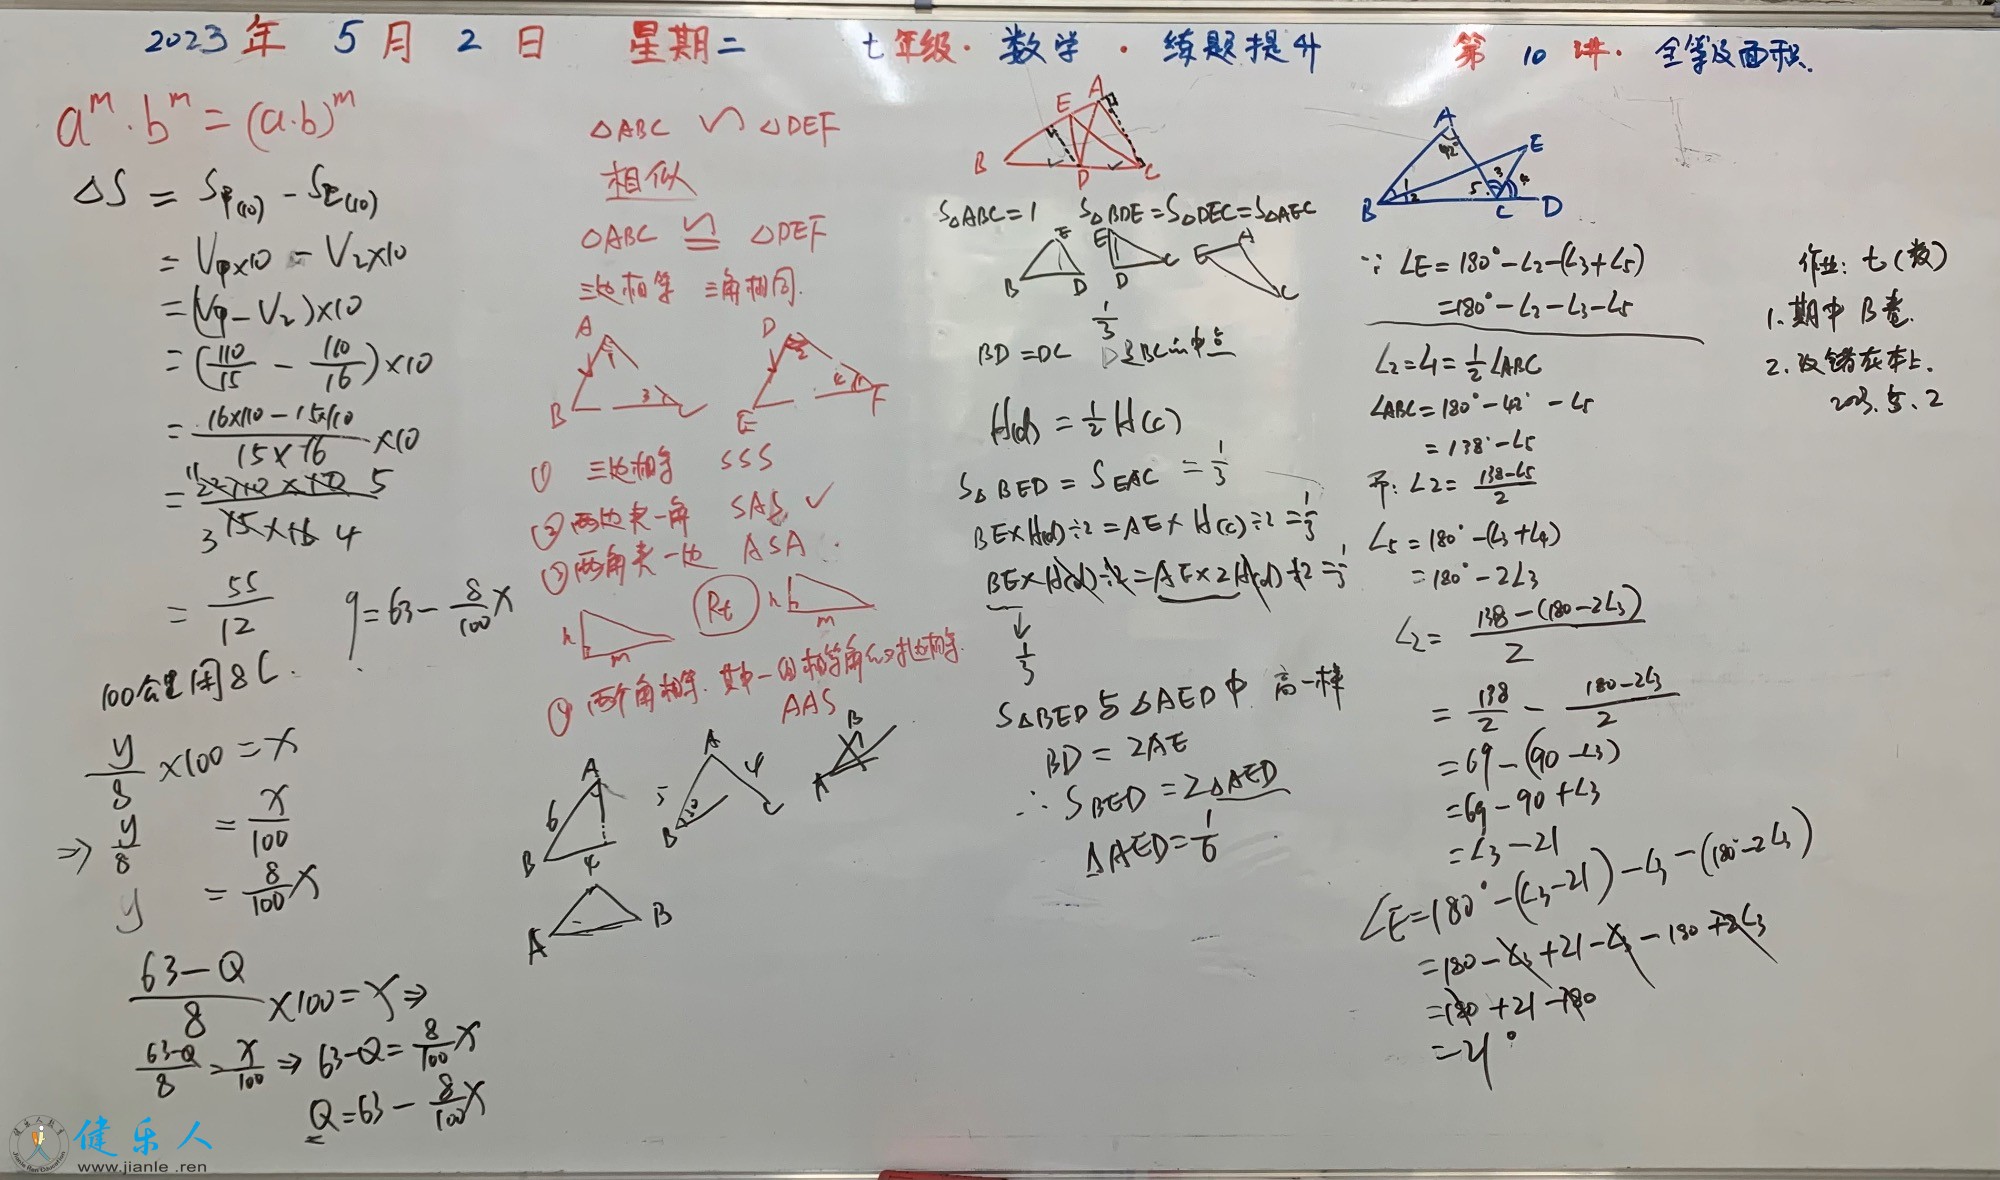 2023年 5月 2日 星期二 七年级·数学·练题提升 第10讲·全等及面积.
aᵐ·bᵐ=(a·b)ᵐ
△S = S甲(10) - S乙(10)
= V甲×10 - V乙×10
=(V甲-V乙)×10
=(110/15 - 110/16)×10
= (16×110-15×110)/(15×16) ×10
= 55/12
y=63-8/100 x
100公里用8L.
y/8 ×100=x
⇒ y/8 = x/100
y = 8/100 x
(63-Q)/8 ×100=x⇒
(63-Q)/8 = x/100 ⇒ 63-Q=8/100 x
Q=63-8/100 x
△ABC ∽ △DEF
相似
△ABC ≌ △DEF
三边相等 三角相同.
A
B
C
1
3
D
E
F
2
4
① 三边相等 SSS
②两边夹一角 SAS ✓
③两角夹一边 ASA.
h
m
Rt
h
m
④两个角相等.其中一组相等角的对边相等.
AAS
A
6
B
4
A
5
4
B
30
C
B
A
A
B
E A
B D C
S△ABC=1 S△BDE=S△DEC=S△AEC
E
B D
E
D C
E A
C
1/3
BD=DC D是BC的中点
H(d)=1/2 H(c)
S△BED=S EAC=1/3
BE×H(d)÷2=AE×H(c)÷2=1/3
BE×H(d)÷2=AE×2H(d)÷2=1/3
↓
1/3
S△BED与△AED中 高一样
BD=2AE
∴S BED=2△AED
△AED=1/6
A
42°
E
1
2
5
3
4
B C D
∵ ∠E=180°-∠2-(∠3+∠5)
=180°-∠2-∠3-∠5
∠2=∠1=1/2∠ABC
∠ABC=180°-42°-∠5
=138°-∠5
即:∠2=(138-∠5)/2
∠5=180°-(∠3+∠4)
=180°-2∠3
∠2=(138-(180-2∠3))/2
=138/2-(180-2∠3)/2
=69-(90-∠3)
=69-90+∠3
=∠3-21
∠E=180°-(∠3-21)-∠3-(180°-2∠3)
=180-∠3+21-∠3-180+2∠3
=180+21-180
=21°
作业:七(数)
1.期中B卷.
2.改错在本上.
2023.5.2
健乐人
www.jianle.ren